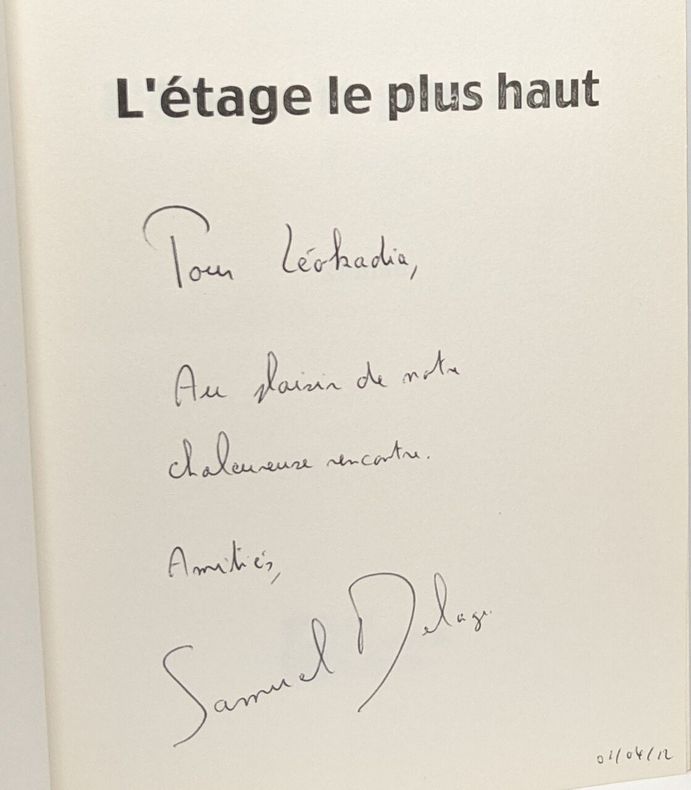 L'étage le plus haut
Pour Léokadia,
Au plaisir de notre
chaleureuse rencontre.
Amitiés,
Samuel Delage
01/04/12